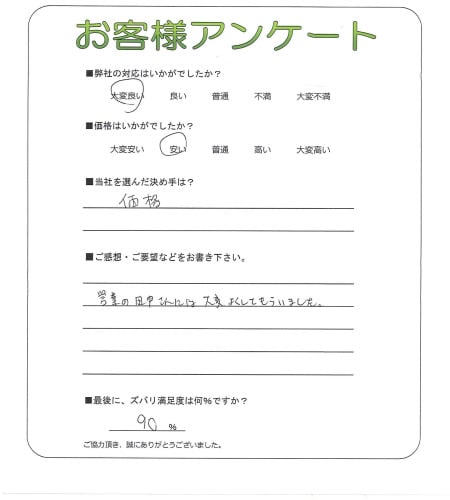 お客様アンケート
■弊社の対応はいかがでしたか？
大変良い 良い 普通 不満 大変不満
■価格はいかがでしたか？
大変安い 安い 普通 高い 大変高い
■当社を選んだ決め手は？
価格
■ご感想・ご要望などをお書き下さい。
営業の田中さんには大変よくしてもらいました。
■最後に、ズバリ満足度は何%ですか？
90 %
ご協力頂き、誠にありがとうございました。